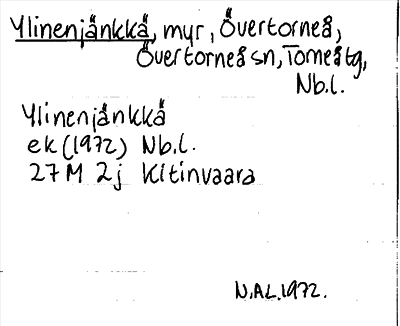 Ylinenjånkkå, myr, Övertorneå,
Övertorneå sn, Torneå tg,
Nb.l.
Ylinenjånkkå
ek (1972) Nb.l.
27 M 2j Kitinvaara
N.AL.1972.